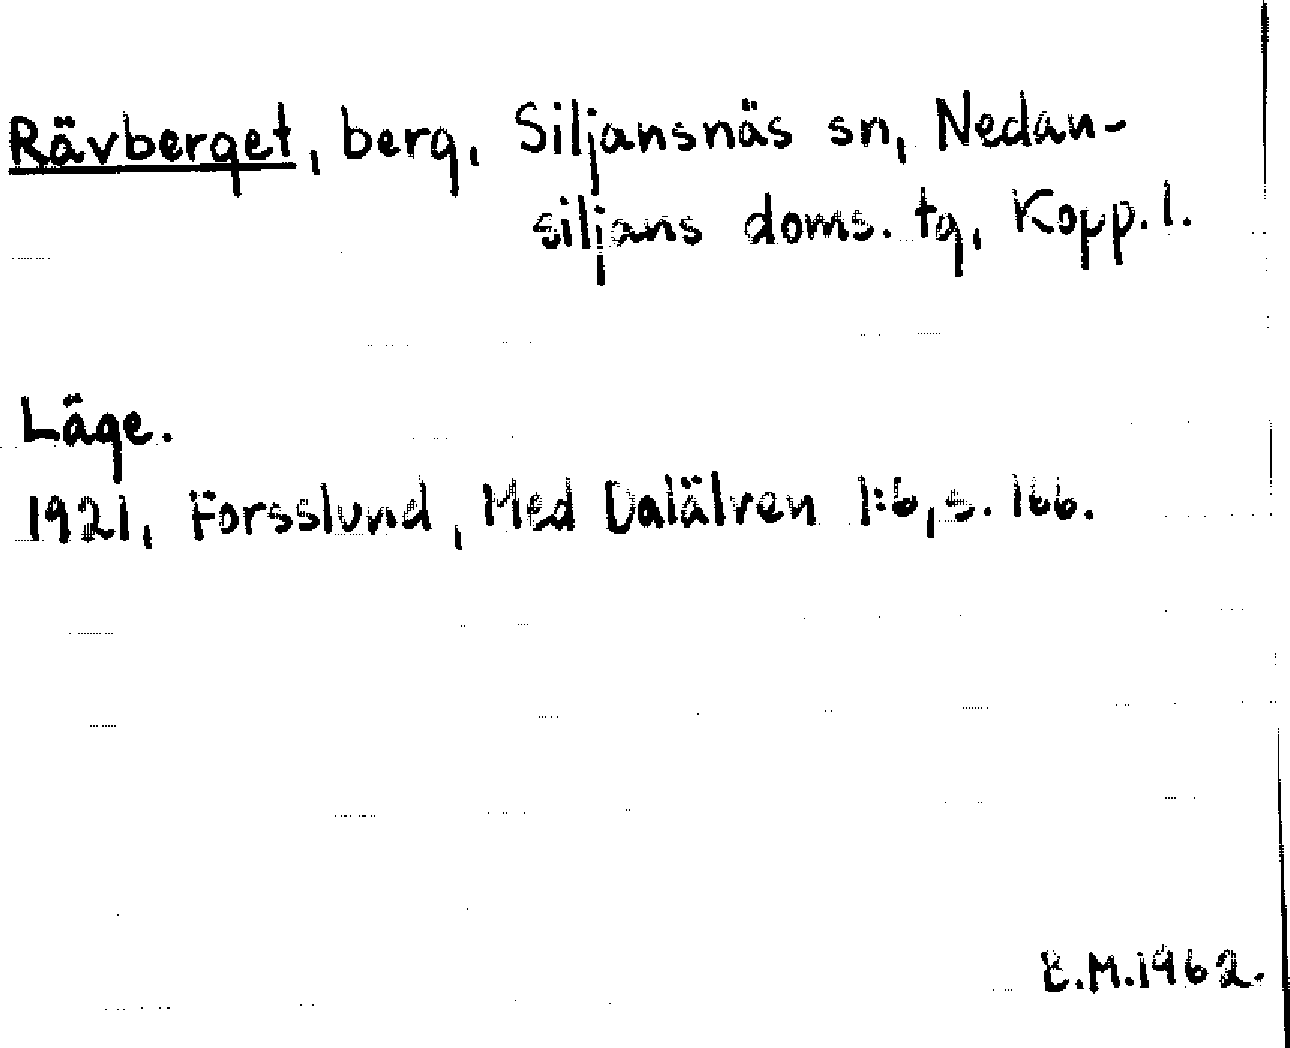 Rävberget, berg, Siljansnäs sn, Nedan-
siljans doms. tg, Kopp. l.
Läge.
1921, Forsslund, Med Dalälven 1:6, s. 166.
E.M. 1962.